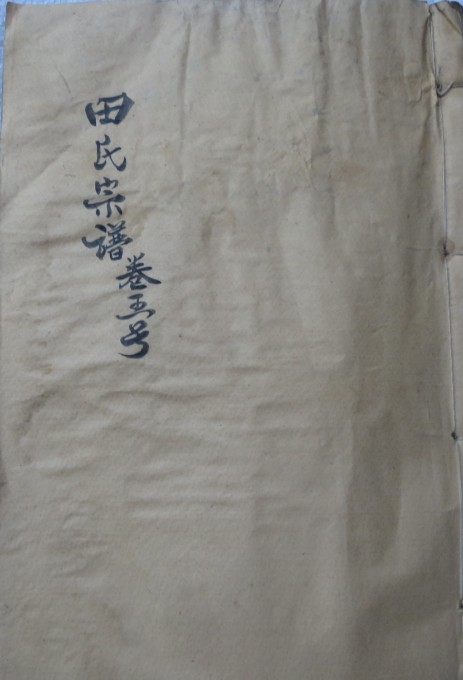 田氏宗谱
卷五号